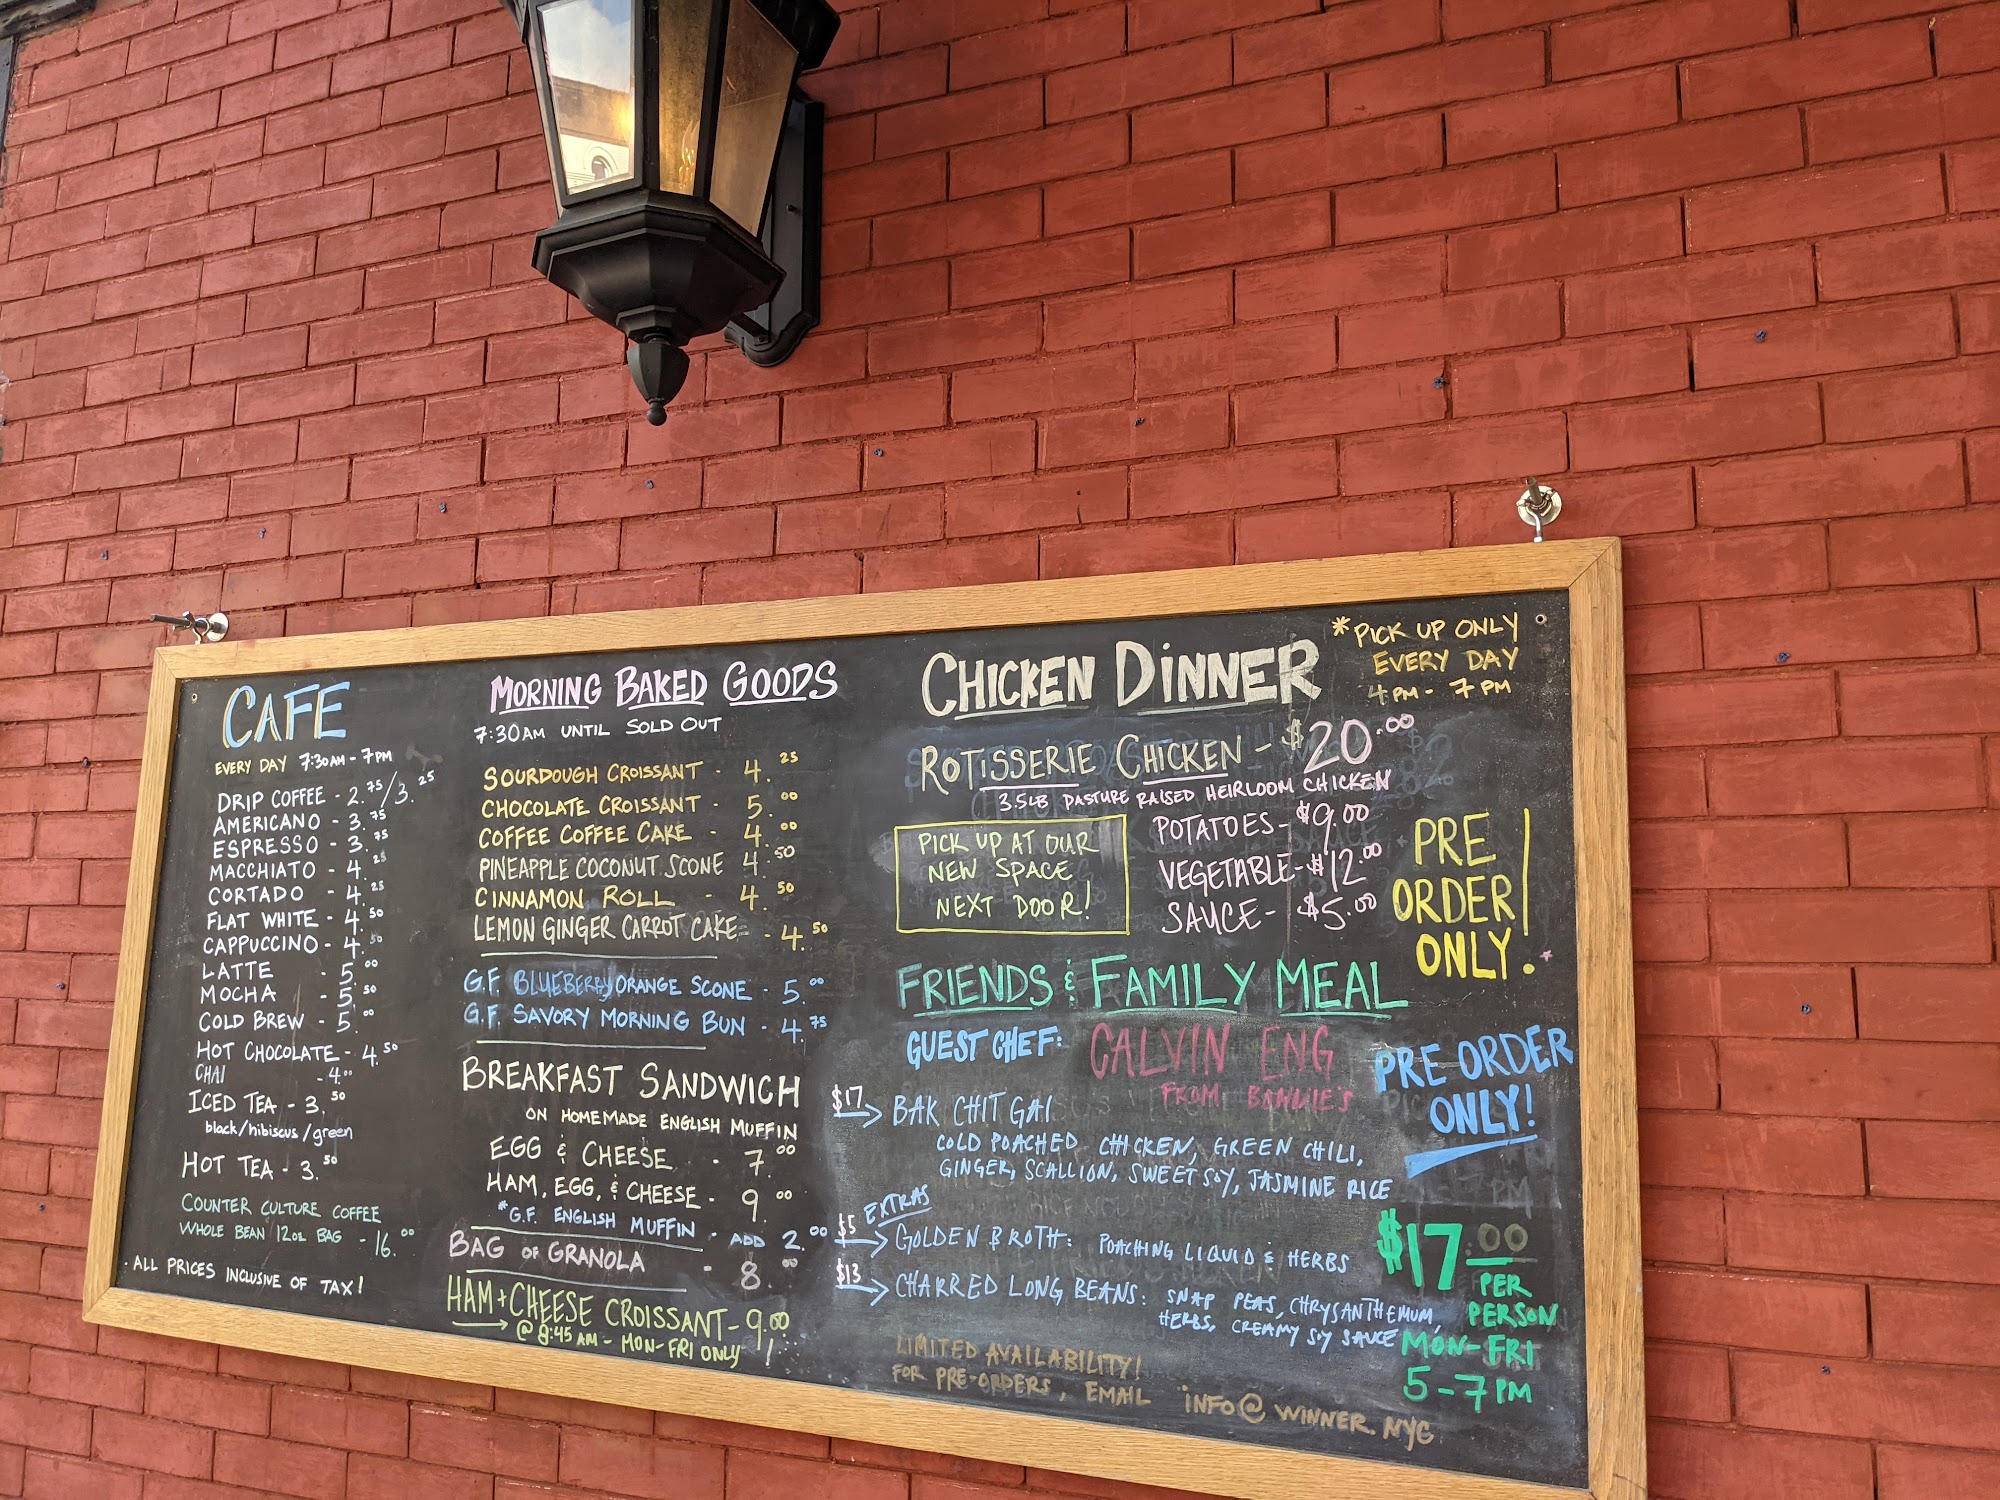 CAFE
EVERY DAY 7:30AM - 7PM
DRIP COFFEE - 2.75/3.25
AMERICANO - 3.75
ESPRESSO - 3.75
MACCHIATO - 4.25
CORTADO - 4.25
FLAT WHITE - 4.50
CAPPUCCINO - 4.50
LATTE - 5.00
MOCHA - 5.50
COLD BREW - 5.00
HOT CHOCOLATE - 4.50
CHAI - 4.00
ICED TEA - 3.50
black/hibiscus/green
HOT TEA - 3.50
COUNTER CULTURE COFFEE
WHOLE BEAN 12oz BAG - 16.00
. ALL PRICES INCLUSIVE OF TAX!
MORNING BAKED GOODS
7:30AM UNTIL SOLD OUT
SOURDOUGH CROISSANT - 4.25
CHOCOLATE CROISSANT - 5.00
COFFEE COFFEE CAKE - 4.00
PINEAPPLE COCONUT SCONE 4.50
CINNAMON ROLL - 4.50
LEMON GINGER CARROT CAKE - 4.50
G.F. BLUEBERRY ORANGE SCONE - 5.00
G.F. SAVORY MORNING BUN - 4.75
BREAKFAST SANDWICH
ON HOMEMADE ENGLISH MUFFIN
EGG & CHEESE - 7.00
HAM, EGG, & CHEESE - 9.00
*G.F. ENGLISH MUFFIN - ADD 2.00
BAG OF GRANOLA - 8.00
HAM + CHEESE CROISSANT - 9.00
@ 8:45 AM - MON-FRI ONLY!
CHICKEN DINNER
*PICK UP ONLY
EVERY DAY
4PM - 7PM
ROTISSERIE CHICKEN - $20.00
3.5LB PASTURE RAISED HEIRLOOM CHICKEN
PICK UP AT OUR
NEW SPACE
NEXT DOOR!
POTATOES - $9.00
VEGETABLE - $12.00
SAUCE - $5.00
PRE
ORDER
ONLY!
FRIENDS & FAMILY MEAL
GUEST CHEF: CALVIN ENG
FROM BONNIE'S
PRE ORDER
ONLY!
$17 → BAK CHIT GAI
COLD POACHED CHICKEN, GREEN CHILI,
GINGER, SCALLION, SWEET SOY, JASMINE RICE
EXTRAS
$5 → GOLDEN BROTH: POACHING LIQUID & HERBS
$13 → CHARRED LONG BEANS: SNAP PEAS, CHRYSANTHEMUM,
HERBS, CREAMY SOY SAUCE
$17.00
PER
PERSON
MON-FRI
5-7PM
LIMITED AVAILABILITY!
FOR PRE-ORDERS, EMAIL INFO@WINNER.NYC